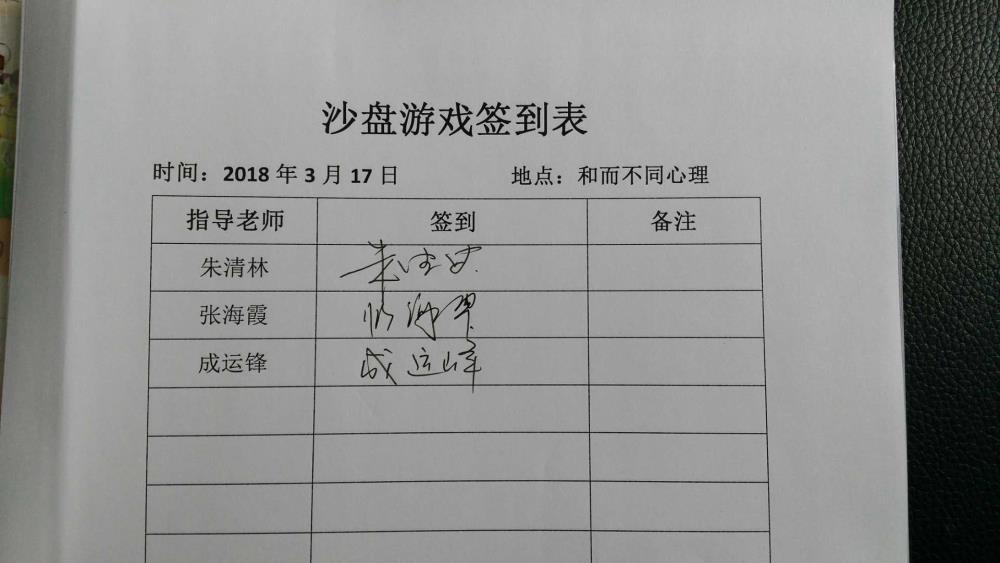 沙盘游戏签到表
时间：2018 年 3 月 17 日 地点：和而不同心理
指导老师 签到 备注
朱清林
张海霞
成运锋 成运峰